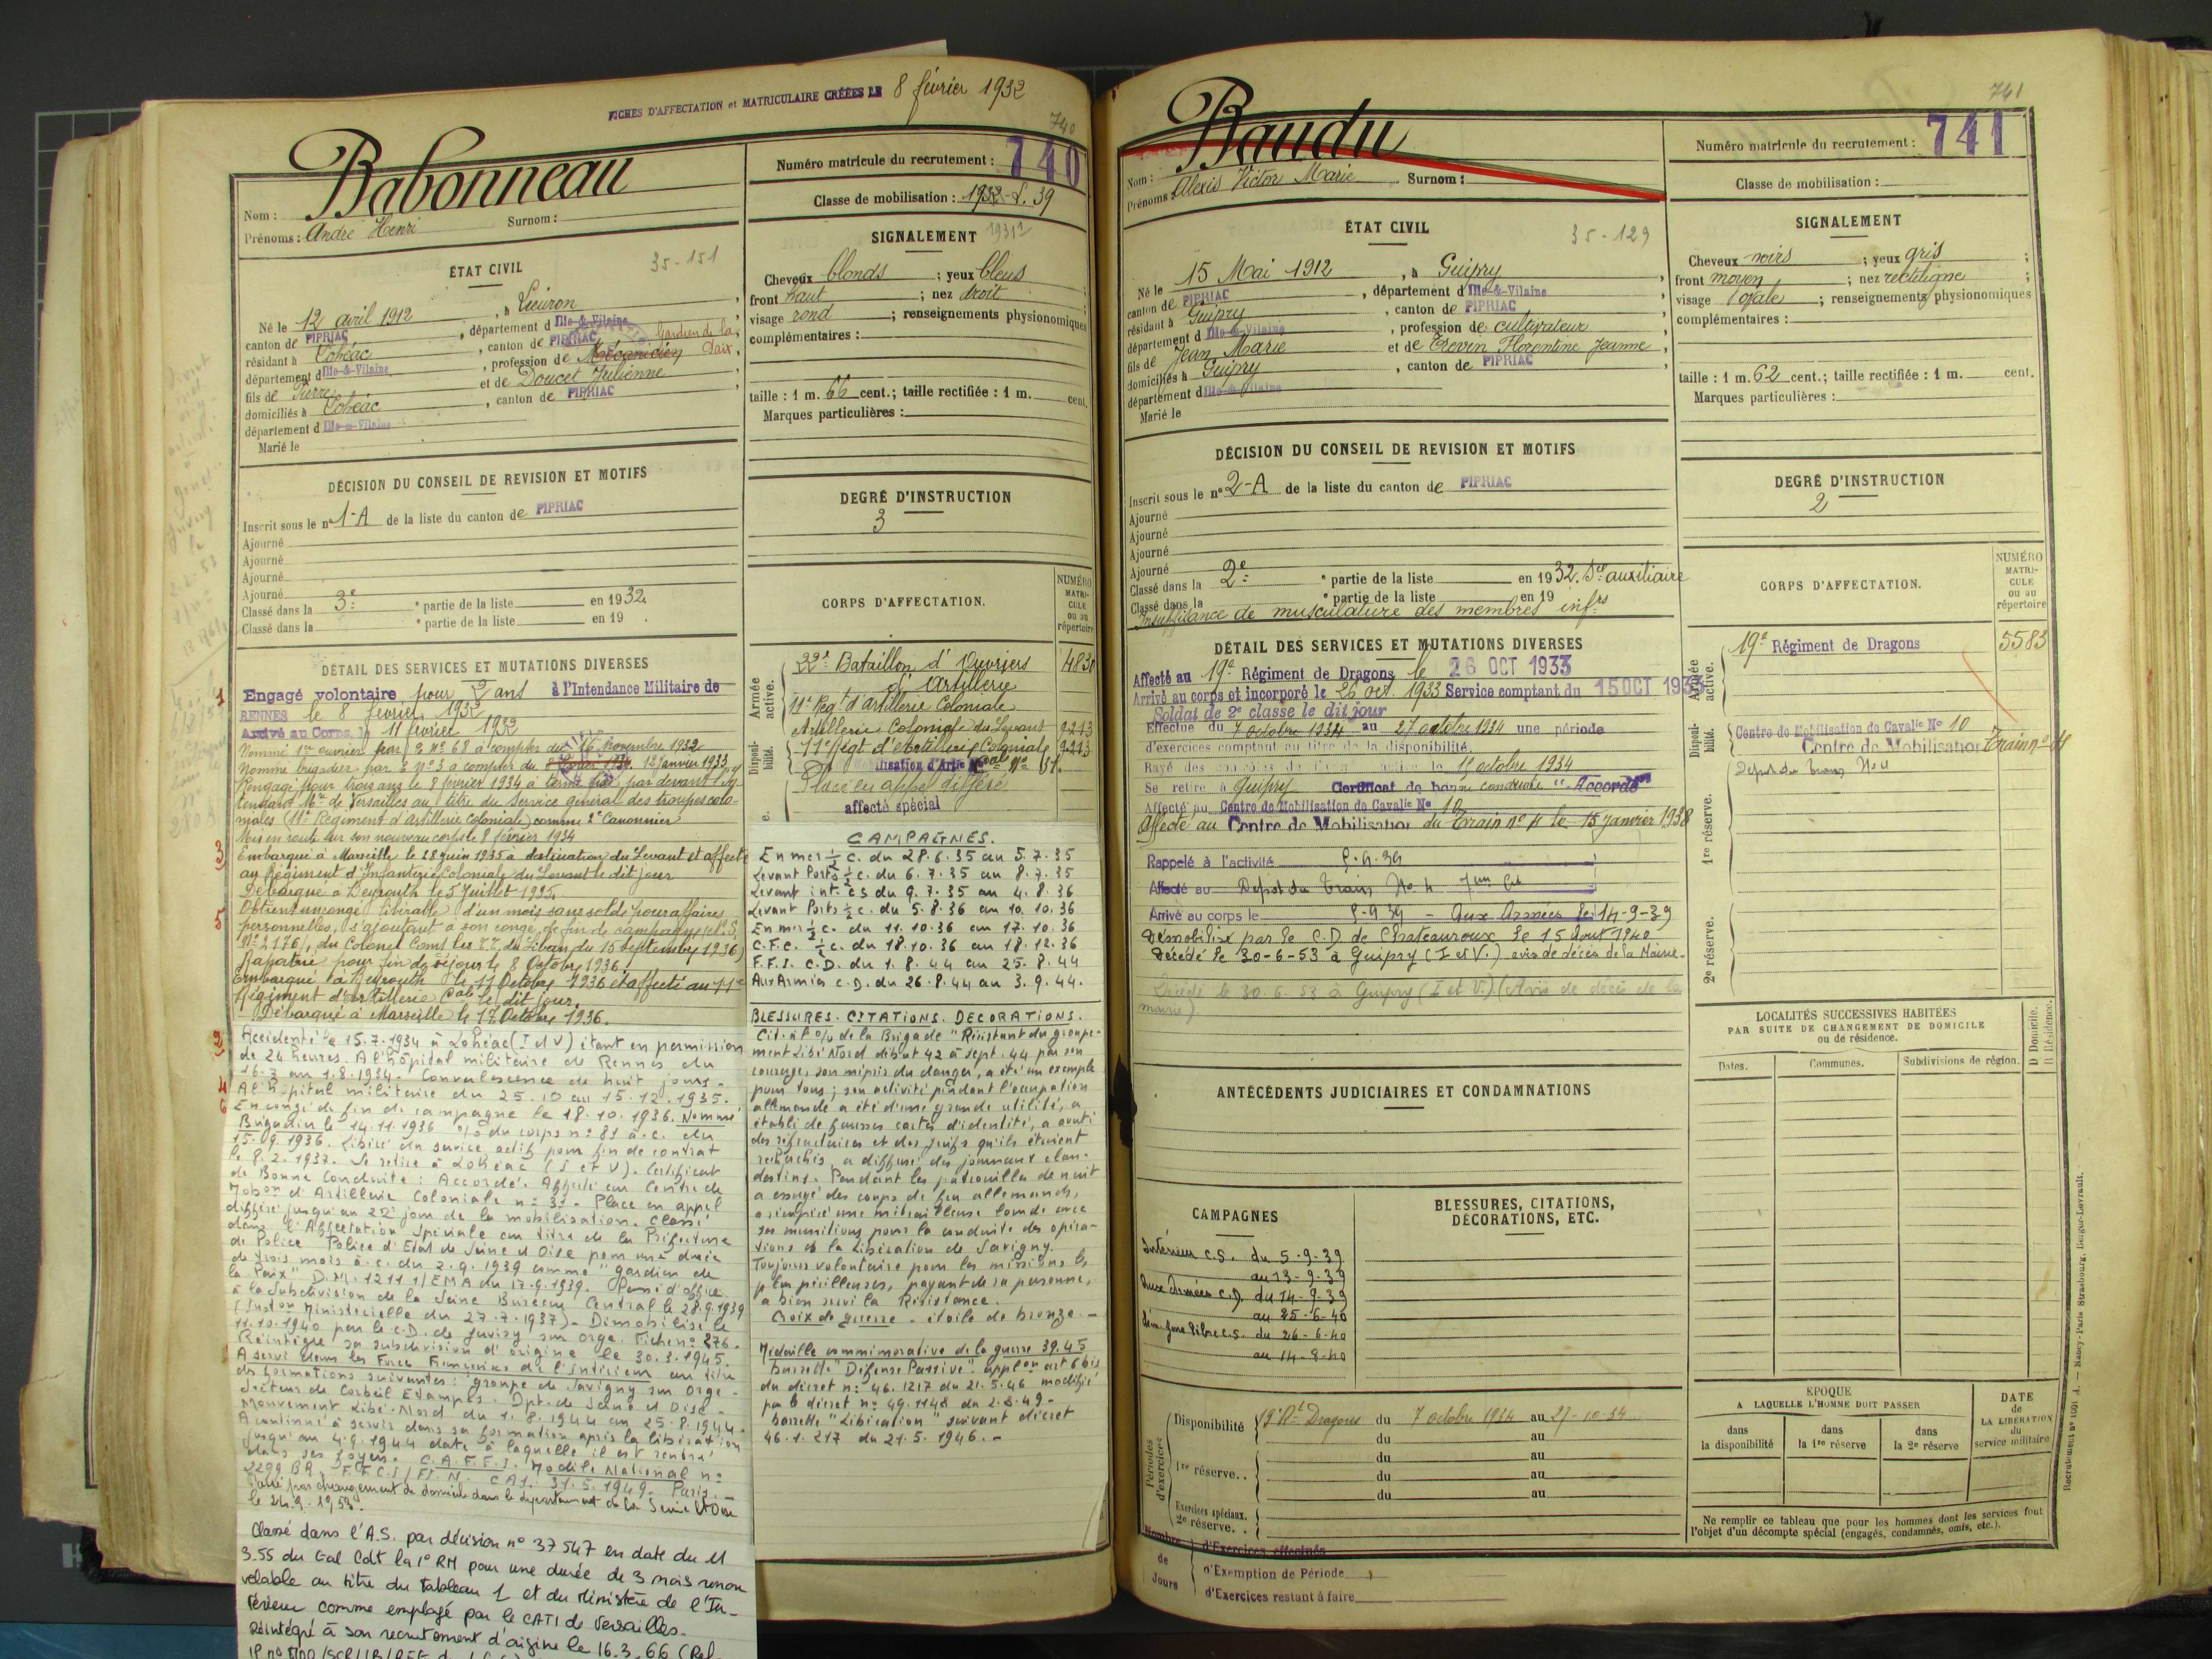 FICHES D'AFFECTATION et MATRICULAIRE CRÉÉES LE 8 février 1932
740
Babonneau
Nom :
Surnom :
Prénoms : André Henri
Numéro matricule du recrutement : 740
Classe de mobilisation : 1932-S. 39
ÉTAT CIVIL
35-151
Né le 12 avril 1912, à Lieuron,
canton de PIPRIAC, département d Ille-&-Vilaine
résidant à Lohéac, canton de PIPRIAC Gardien de la Paix
département d Ille-&-Vilaine, profession de Mécanicien
fils de Pierre et de Doucet Julienne,
domiciliés à Lohéac, canton de PIPRIAC
département d Ille-&-Vilaine
Marié le
SIGNALEMENT
Cheveux blonds ; yeux bleus
front haut ; nez droit
visage rond ; renseignements physionomiques
complémentaires :
taille : 1 m. 66 cent.; taille rectifiée : 1 m. cent.
Marques particulières :
DÉCISION DU CONSEIL DE REVISION ET MOTIFS
Inscrit sous le n° 1-A de la liste du canton de PIPRIAC
Ajourné
Ajourné
Ajourné
Ajourné
Classé dans la 3e ° partie de la liste en 1932.
Classé dans la ° partie de la liste en 19 .
DEGRÉ D'INSTRUCTION
3
CORPS D'AFFECTATION.
NUMÉRO MATRI-CULE ou au répertoire
Armée active.
22e Bataillon d'Ouvriers 4830
d'Artillerie
11e Régt d'Artillerie Coloniale
Artillerie Coloniale du Levant 9213
Disponi-bilité.
11e Régt d'Artillerie Coloniale 9213
Placé en appel différé
affecté spécial
DÉTAIL DES SERVICES ET MUTATIONS DIVERSES
1 Engagé volontaire pour 2 ans à l'Intendance Militaire de
RENNES le 8 février 1932
Arrivé au Corps le 11 février 1932
Nommé 1er ouvrier par O N° 68 à compter du 16 novembre 1932
Nommé brigadier par O N° 3 à compter du 12 Janvier 1933
Rengagé pour trois ans le 8 février 1934 à terme fixe, par devant l'In-
tendant Mre de Versailles au titre du Service général des troupes colo-
niales (11e Régiment d'artillerie Coloniale) comme 2e Canonnier
Mis en route sur son nouveau corps le 8 février 1934
3 Embarqué à Marseille le 28 juin 1935 à destination du Levant et affecté
au Régiment d'Infanterie Coloniale du Levant le dit jour
Débarqué à Beyrouth le 5 Juillet 1935.
5 Obtient un congé libérable d'un mois sans solde pour affaires
personnelles, s'ajoutant à son congé de fin de campagne
N° 2176/, du Colonel Comt les T.T. du Liban du 15 septembre 1936)
Rapatrié pour fin de séjour le 8 Octobre 1936.
Embarqué à Beyrouth le 11 Octobre 1936 et affecté au 11e
Régiment d'Artillerie Cale le dit jour.
Débarqué à Marseille le 17 Octobre 1936.
2 Accidenté le 15.7.1934 à Lohéac (I et V) étant en permission
de 24 heures. A l'hôpital militaire de Rennes du
16.7 au 1.8.1934. Convalescence de huit jours.
4 A l'hôpital militaire du 25.10 au 15.12.1935.
6 En congé de fin de campagne le 18.10.1936. Nommé
Brigadier le 14.11.1936 O/ du corps n° 81 à.c. du
15.9.1936. Libéré du service actif pour fin de contrat
le 8.2.1937. Se retire à Lohéac (I et V). Certificat
de Bonne Conduite : Accordé. Affecté au Centre de
Mobon d'Artillerie Coloniale n° 31. Placé en appel
différé jusqu'au 22e jour de la mobilisation. Classé
dans l'Affectation Spéciale au titre de la Préfecture
de Police - Police d'Etat de Seine et Oise pour une durée
de trois mois à.c. du 2.9.1939 comme "gardien de
la Paix" D.M. 1211 1/EMA du 17.9.1939. Passé d'office
à la Subdivision de la Seine Bureau Central le 28.9.1939
(Inston Ministérielle du 27.7.1937). Démobilisé le
11.10.1940 par le C.D. de Juvisy sur Orge. Fiche n° 276.
Réintègre sa subdivision d'origine le 30.3.1945.
A servi dans les Forces Françaises de l'Intérieur au titre
des formations suivantes : groupe de Savigny sur Orge -
Secteur de Corbeil Etampes. Dpt. de Seine et Oise -
Mouvement Libé-Nord du 1.8.1944 au 25.8.1944.
A continué à servir dans sa formation après la libération
jusqu'au 4.9.1944 date à laquelle il est rentré
dans ses foyers. C.A.F.F.I. Modèle National n°
Passé par changement de domicile dans le département de la Seine et Oise
Classé dans l'A.S. par décision n° 37547 en date du 11
3.55 du Gal Cdt la 1° RM pour une durée de 3 mois renou
velable au titre du tableau 1 et du Ministère de l'In-
térieur comme employé par le CATI de Versailles.
Réintégré à son recrutement d'origine le 16.3.66 (Ref.
CAMPAGNES.
En mer ½ c. du 28.6.35 au 5.7.35
Levant Ports ½ c. du 6.7.35 au 8.7.35
Levant int. cs du 9.7.35 au 4.8.36
Levant Ports ½ c. du 5.8.36 au 10.10.36
En mer ½ c. du 11.10.36 au 17.10.36
C.F.C. ½ c. du 18.10.36 au 18.12.36
F.F.I. C.D. du 1.8.44 au 25.8.44
Aux Armées C.D. du 26.8.44 au 3.9.44.
BLESSURES. CITATIONS. DECORATIONS.
Cit. à l'O/ de la Brigade "Résistant du groupe-
ment Libé Nord début 42 à sept. 44 par son
courage, son mépris du danger, a été un exemple
pour tous ; son activité pendant l'occupation
allemande a été d'une grande utilité, a
établi de fausses cartes d'identité, a averti
des réfractaires et des juifs qu'ils étaient
recherchés, a diffusé des journaux clan-
destins. Pendant les patrouilles de nuit
a essuyé des coups de feu allemands,
a récupéré une mitrailleuse lourde avec
ses munitions pour la conduite des opéra-
tions de la Libération de Savigny.
Toujours volontaire pour les missions les
plus périlleuses, payant de sa personne,
a bien servi la Résistance.
Croix de guerre - étoile de bronze. -
Médaille commémorative de la guerre 39.45
barrette "Défense Passive". applon art 6 bis
du décret n° 46.1217 du 21.5.46 modifié
par le décret n° 49.1148 du 2.8.49 -
barrette "Libération" suivant décret
46.1.217 du 21.5.1946. -
741
Baudu
Nom :
Surnom :
Prénoms : Alexis Victor Marie
Numéro matricule du recrutement : 741
Classe de mobilisation :
ÉTAT CIVIL
35-129
Né le 15 Mai 1912, à Guipry,
canton de PIPRIAC, département d Ille-&-Vilaine
résidant à Guipry, canton de PIPRIAC
département d Ille-&-Vilaine, profession de cultivateur
fils de Jean Marie et de Crevin Florentine Jeanne,
domiciliés à Guipry, canton de PIPRIAC
département d Ille-&-Vilaine
Marié le
SIGNALEMENT
Cheveux noirs ; yeux gris ;
front moyen ; nez rectiligne ;
visage ovale ; renseignements physionomiques
complémentaires :
taille : 1 m. 62 cent.; taille rectifiée : 1 m. cent.
Marques particulières :
DÉCISION DU CONSEIL DE REVISION ET MOTIFS
Inscrit sous le n° 2-A de la liste du canton de PIPRIAC
Ajourné
Ajourné
Ajourné
Ajourné
Classé dans la 2e ° partie de la liste en 1932. Sce auxiliaire
Classé dans la ° partie de la liste en 19
Insuffisance de musculature des membres infrs
DEGRÉ D'INSTRUCTION
2
CORPS D'AFFECTATION.
NUMÉRO MATRI-CULE ou au répertoire
Armée active.
19e Régiment de Dragons 5583
Disponi-bilité.
Centre de Mobilisation de Cavalie N° 10
Centre de Mobilisation Train n°
Dépôt du Train N° 4
1re réserve.
2e réserve.
DÉTAIL DES SERVICES ET MUTATIONS DIVERSES
Affecté au 19e Régiment de Dragons le 26 OCT 1933
Arrivé au corps et incorporé le 26 oct. 1933 Service comptant du 15 OCT 1933
Soldat de 2e classe le dit jour
Effectue du 7 octobre 1934 au 27 octobre 1934 une période
d'exercices comptant au titre de la disponibilité.
Rayé des contrôles de l'armée active le 15 octobre 1934
Se retire à Guipry Certificat de bonne conduite "Accordé"
Affecté au Centre de Mobilisation de Cavalie N° 10
Affecté au Centre de Mobilisation du Train n° 4 le 15 janvier 1938
Rappelé à l'activité 5.9.39
Affecté au Dépôt du Train N° 4
Arrivé au corps le 5-9-39 - Aux Armées le 14-9-39
Démobilisé par le C.D. de Chateauroux le 15 Aout 1940
Décédé le 30-6-53 à Guipry (I et V.) avis de décès de la Mairie.
Décédé le 30.6.53 à Guipry (I et V.) (Avis de décès de la
mairie)
ANTÉCÉDENTS JUDICIAIRES ET CONDAMNATIONS
LOCALITÉS SUCCESSIVES HABITÉES
PAR SUITE DE CHANGEMENT DE DOMICILE
ou de résidence.
Dates. Communes. Subdivisions de région. D Domicile. R Résidence.
CAMPAGNES
Intérieur c.s. du 5-9-39
au 13-9-39
Aux Armées c.D. du 14-9-39
au 25-6-40
c.s. du 26-6-40
au 14-8-40
BLESSURES, CITATIONS,
DÉCORATIONS, ETC.
Périodes d'exercices
Disponibilité 19e Rt Dragons du 7 octobre 1934 au 27-10-34
du au
1re réserve.. du au
du au
du au
Exercices spéciaux.
2e réserve. .
Nombre de Jours
d'Exercices effectués
d'Exemption de Période
d'Exercices restant à faire
EPOQUE
A LAQUELLE L'HOMME DOIT PASSER
dans la disponibilité
dans la 1re réserve
dans la 2e réserve
DATE de LA LIBÉRATION du service militaire
Ne remplir ce tableau que pour les hommes dont les services font
l'objet d'un décompte spécial (engagés, condamnés, omis, etc.).
Nancy-Paris Strasbourg, Berger-Levrault.